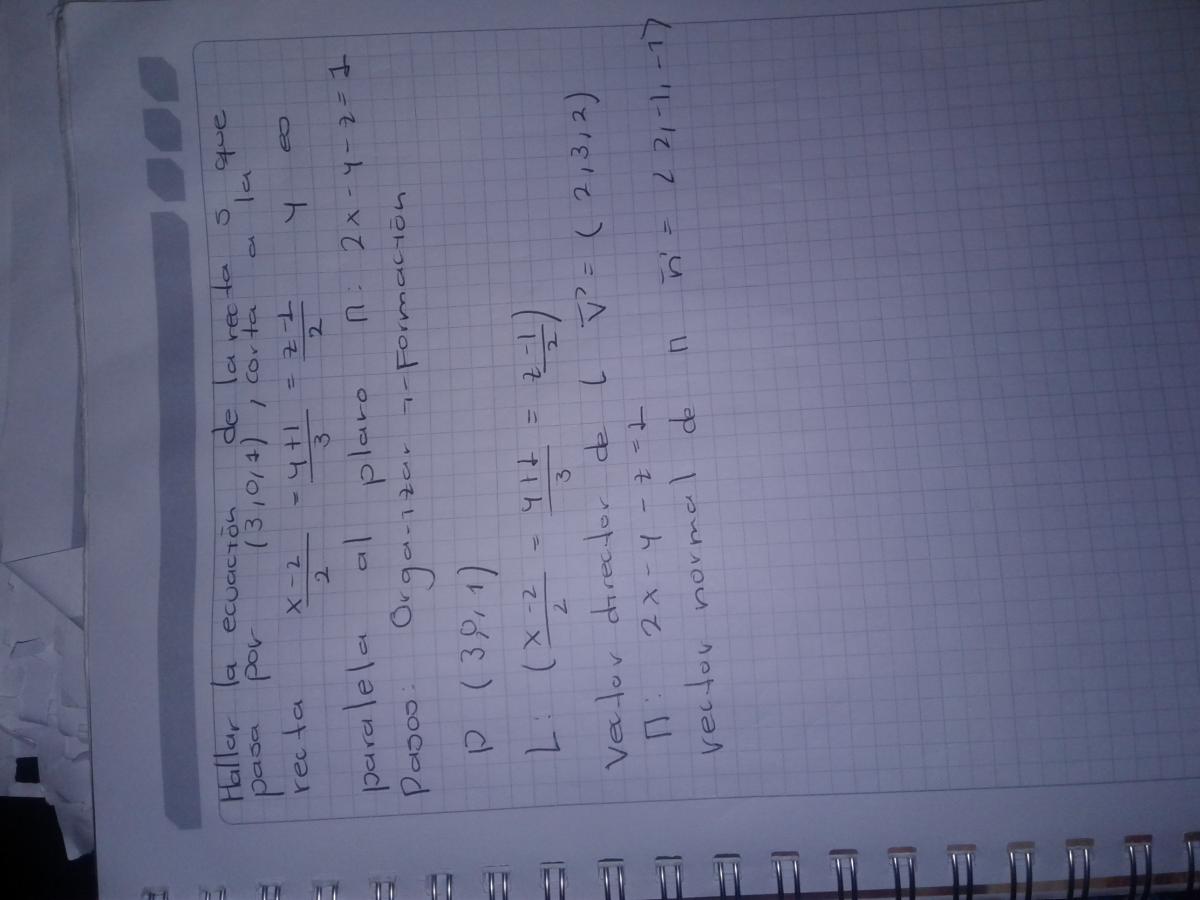 Hallar la ecuación de la recta S que
pasa por (3,0,1), corta a la
recta x-2/2 = y+1/3 = z-1/2 y es
paralela al plano Π: 2x-y-z=1
Pasos: Organizar Formación
P (3,0,1)
L: (x-2/2 = y+1/3 = z-1/2)
Vector director de L V = (2,3,2)
Π: 2x-y-z=1
vector normal de Π n = (2,-1,-1)